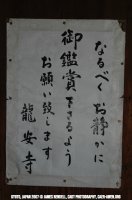 なるべくお静かに
御鑑賞できるよう
お願い致します
龍安寺
KYOTO, JAPAN 2007 © JAMES RENDELL, CAST PHOTOGRAPHY,